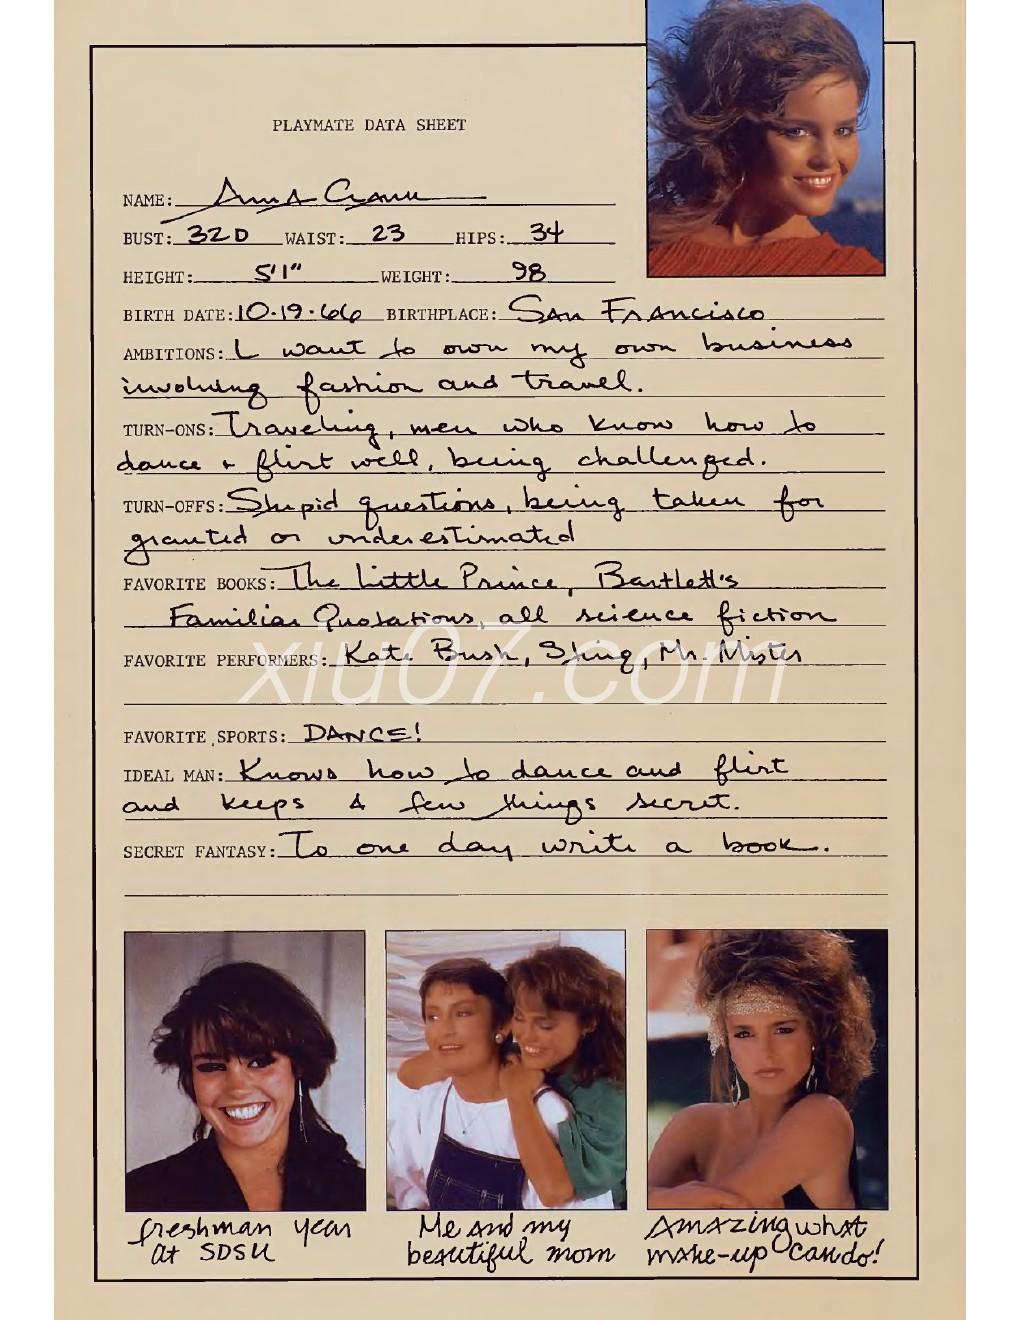 PLAYMATE DATA SHEET
NAME:
BUST: 32D WAIST: 23 HIPS: 34
HEIGHT: 5'1" WEIGHT: 98
BIRTH DATE: 10·19·66 BIRTHPLACE: San Francisco
AMBITIONS: I want to own my own business
involving fashion and travel.
TURN-ONS: Traveling, men who know how to
dance + flirt well, being challenged.
TURN-OFFS: Stupid questions, being taken for
granted or underestimated
FAVORITE BOOKS: The Little Prince, Bartlett's
Familiar Quotations, all science fiction
FAVORITE PERFORMERS: Kate Bush, Sting, Mr. Mister
xiu07.com
FAVORITE SPORTS: DANCE!
IDEAL MAN: Knows how to dance and flirt
and keeps a few things secret.
SECRET FANTASY: To one day write a book.
freshman year
at SDSU
Me and my
beautiful mom
Amazing what
make-up can do!